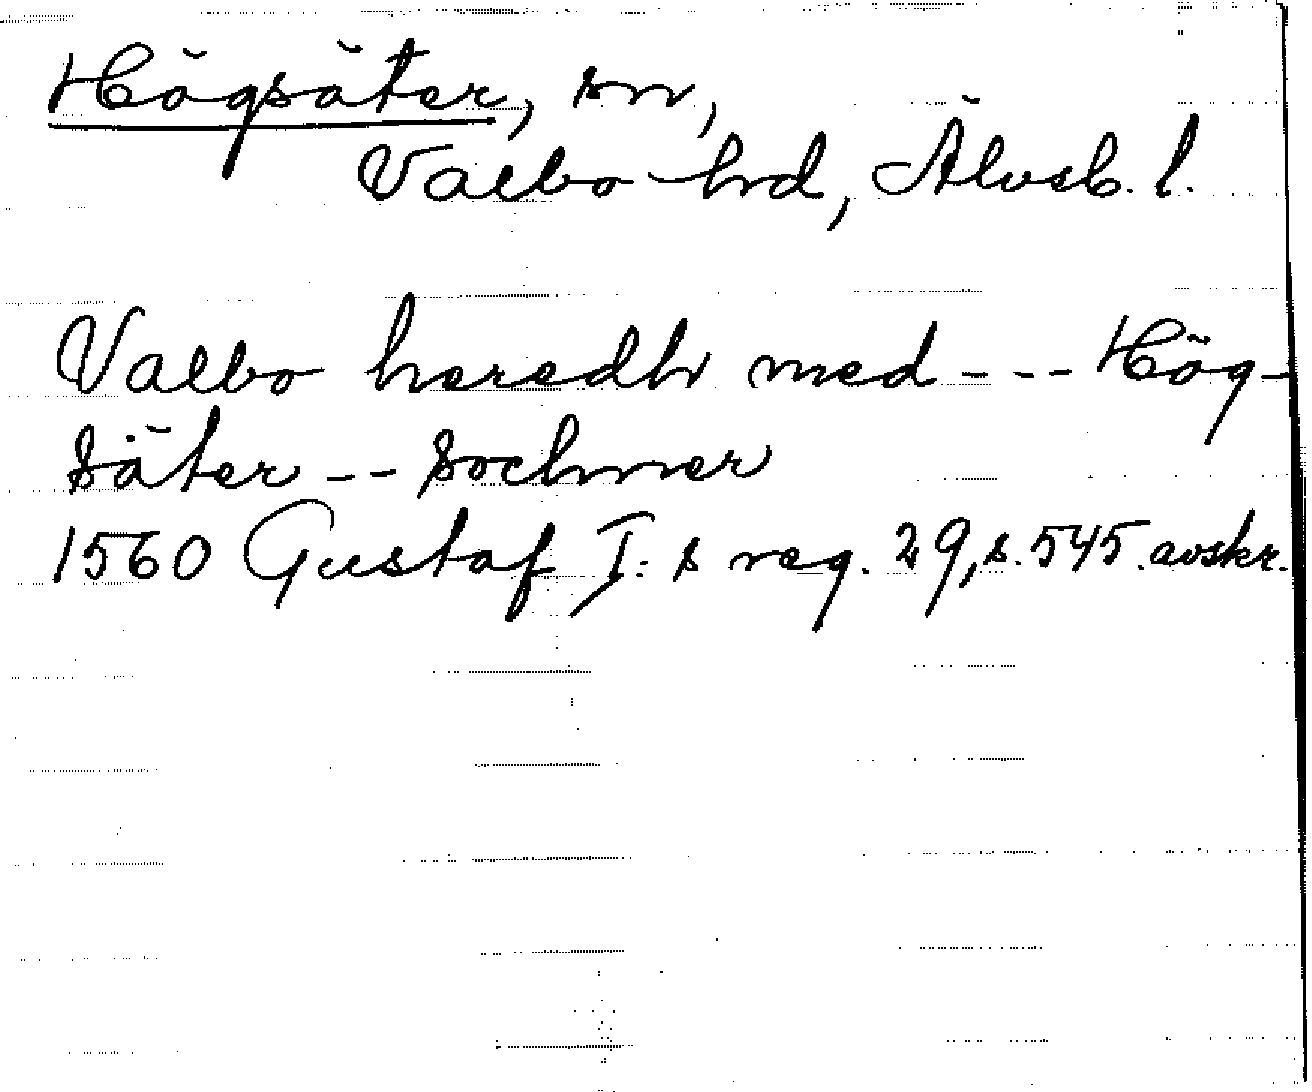 Högsäter, sn,
Valbo hrd, Älvsb. l.
Valbo heredh med - - - Hög-
säter - - sochner
1560 Gustaf I:s reg. 29, s. 545. avskr.